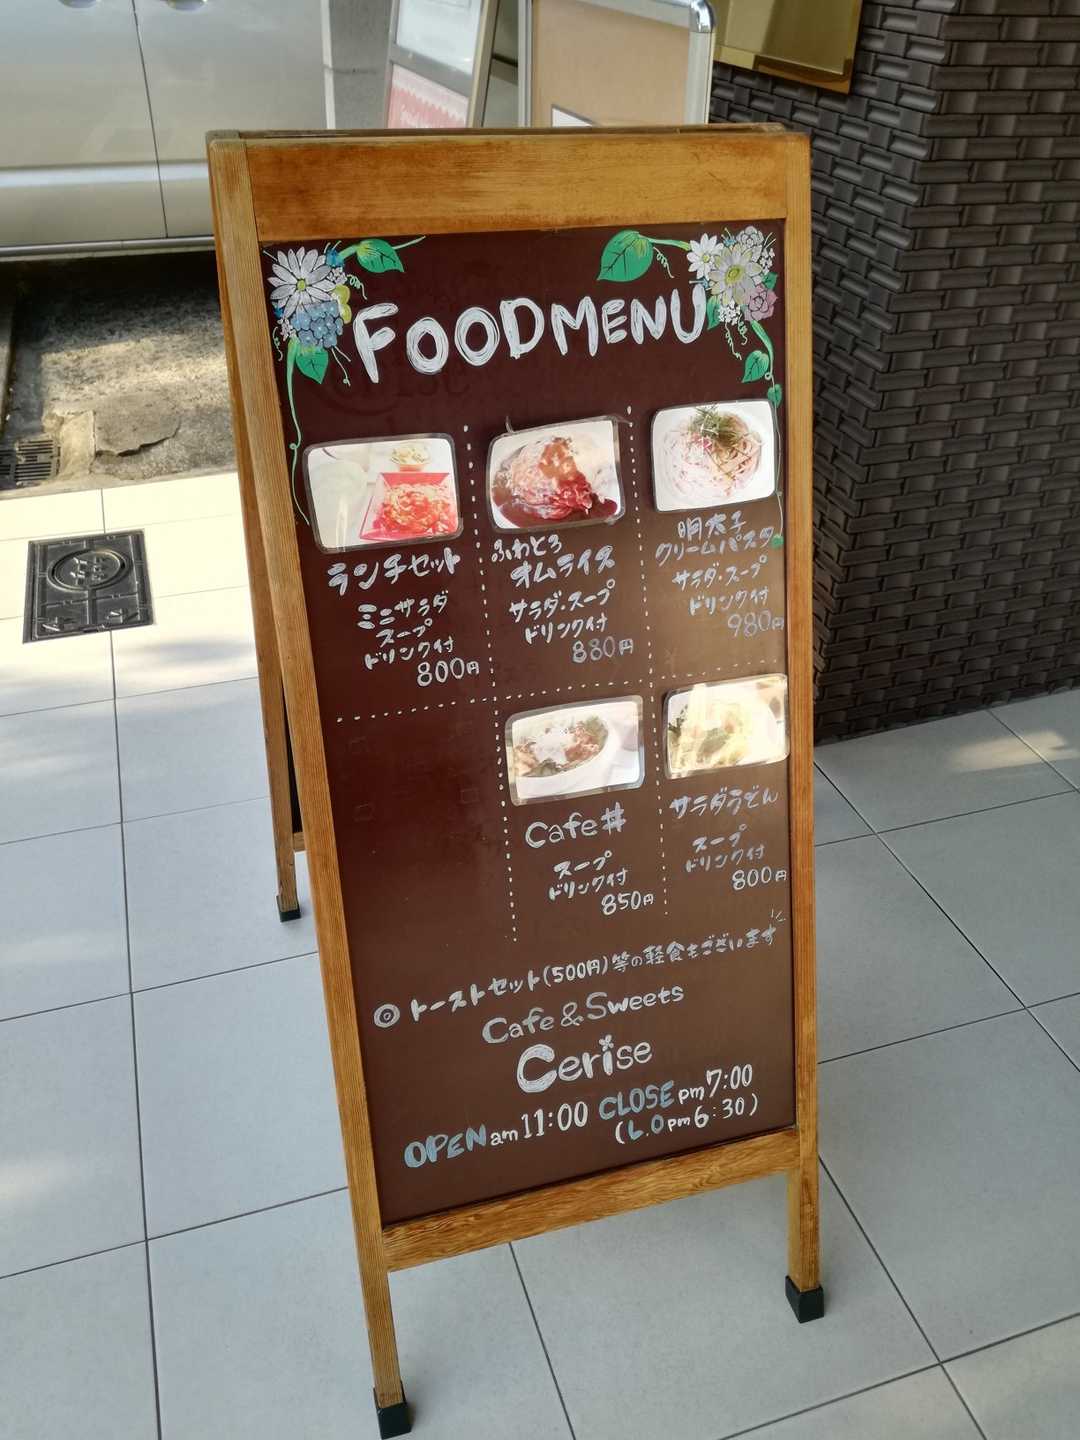 FOODMENU
ランチセット
ミニサラダ
スープ
ドリンク付
800円
ふわとろ
オムライス
サラダ・スープ
ドリンク付
880円
明太子
クリームパスタ
サラダ・スープ
ドリンク付
980円
Cafe丼
スープ
ドリンク付
850円
サラダうどん
スープ
ドリンク付
800円
◎トーストセット(500円)等の軽食もございます
Cafe & Sweets
Cerise
OPEN am 11:00 CLOSE pm 7:00
(L.O pm 6:30)